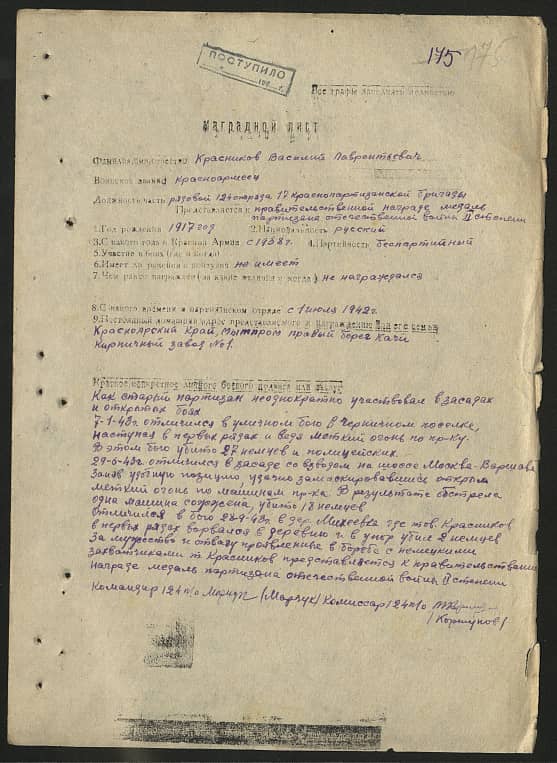 175 175
ПОСТУПИЛО
Все графы заполнять полностью
НАГРАДНОЙ ЛИСТ
Красников Василий Лаврентьевич
Воинское звание Красноармеец
Должность, часть рядовой 124 отряда 17 Краснопартизанской бригады
Представляется к правительственной награде медаль
партизана отечественной войны II степени
1.Год рождения 1917 год 2.Национальность русский
3.С какого года в Красной Армии с 1938 г. 4.Партийность беспартийный
5.Участие в боях (где и когда)
6.Имеет ли ранения и контузии не имеет
7.Чем ранее награжден (за какие отличия и когда) не награждался
8.С какого времени в партизанском отряде с 1 июля 1942 г.
9.Постоянный домашний адрес представляемого к награждению и его семьи
Красноярский Край, правый берег Качи
Кирпичный завод №1.
Краткое конкретное личного боевого подвига или заслуг
Как старый партизан неоднократно участвовал в засадах
и открытых боях
7-1-43г. отличился в уличном бою в поселке,
наступая в первых рядах и ведя меткий огонь по пр-ку.
В этом бою убито 27 немцев и полицейских.
29-6-43г. отличился в засаде со взводом на шоссе Москва-Варшава
Заняв удачно замаскировавшись открыл
меткий огонь по машинам пр-ка. В результате обстрела
одна машина сожжена, убито 18 немцев
Отличился в бою 28-9-43г. в дер. Михеевка где тов. Красников
в первых рядах ворвался в деревню и в упор убил 2 немцев
За мужество и отвагу проявление в борьбе с немецкими
захватчиками т. Красников представляется к правительственной
награде медаль партизана отечественной войны II степени
Командир 124 п/о (Марчук) Комиссар 124 п/о
(Коршунов)